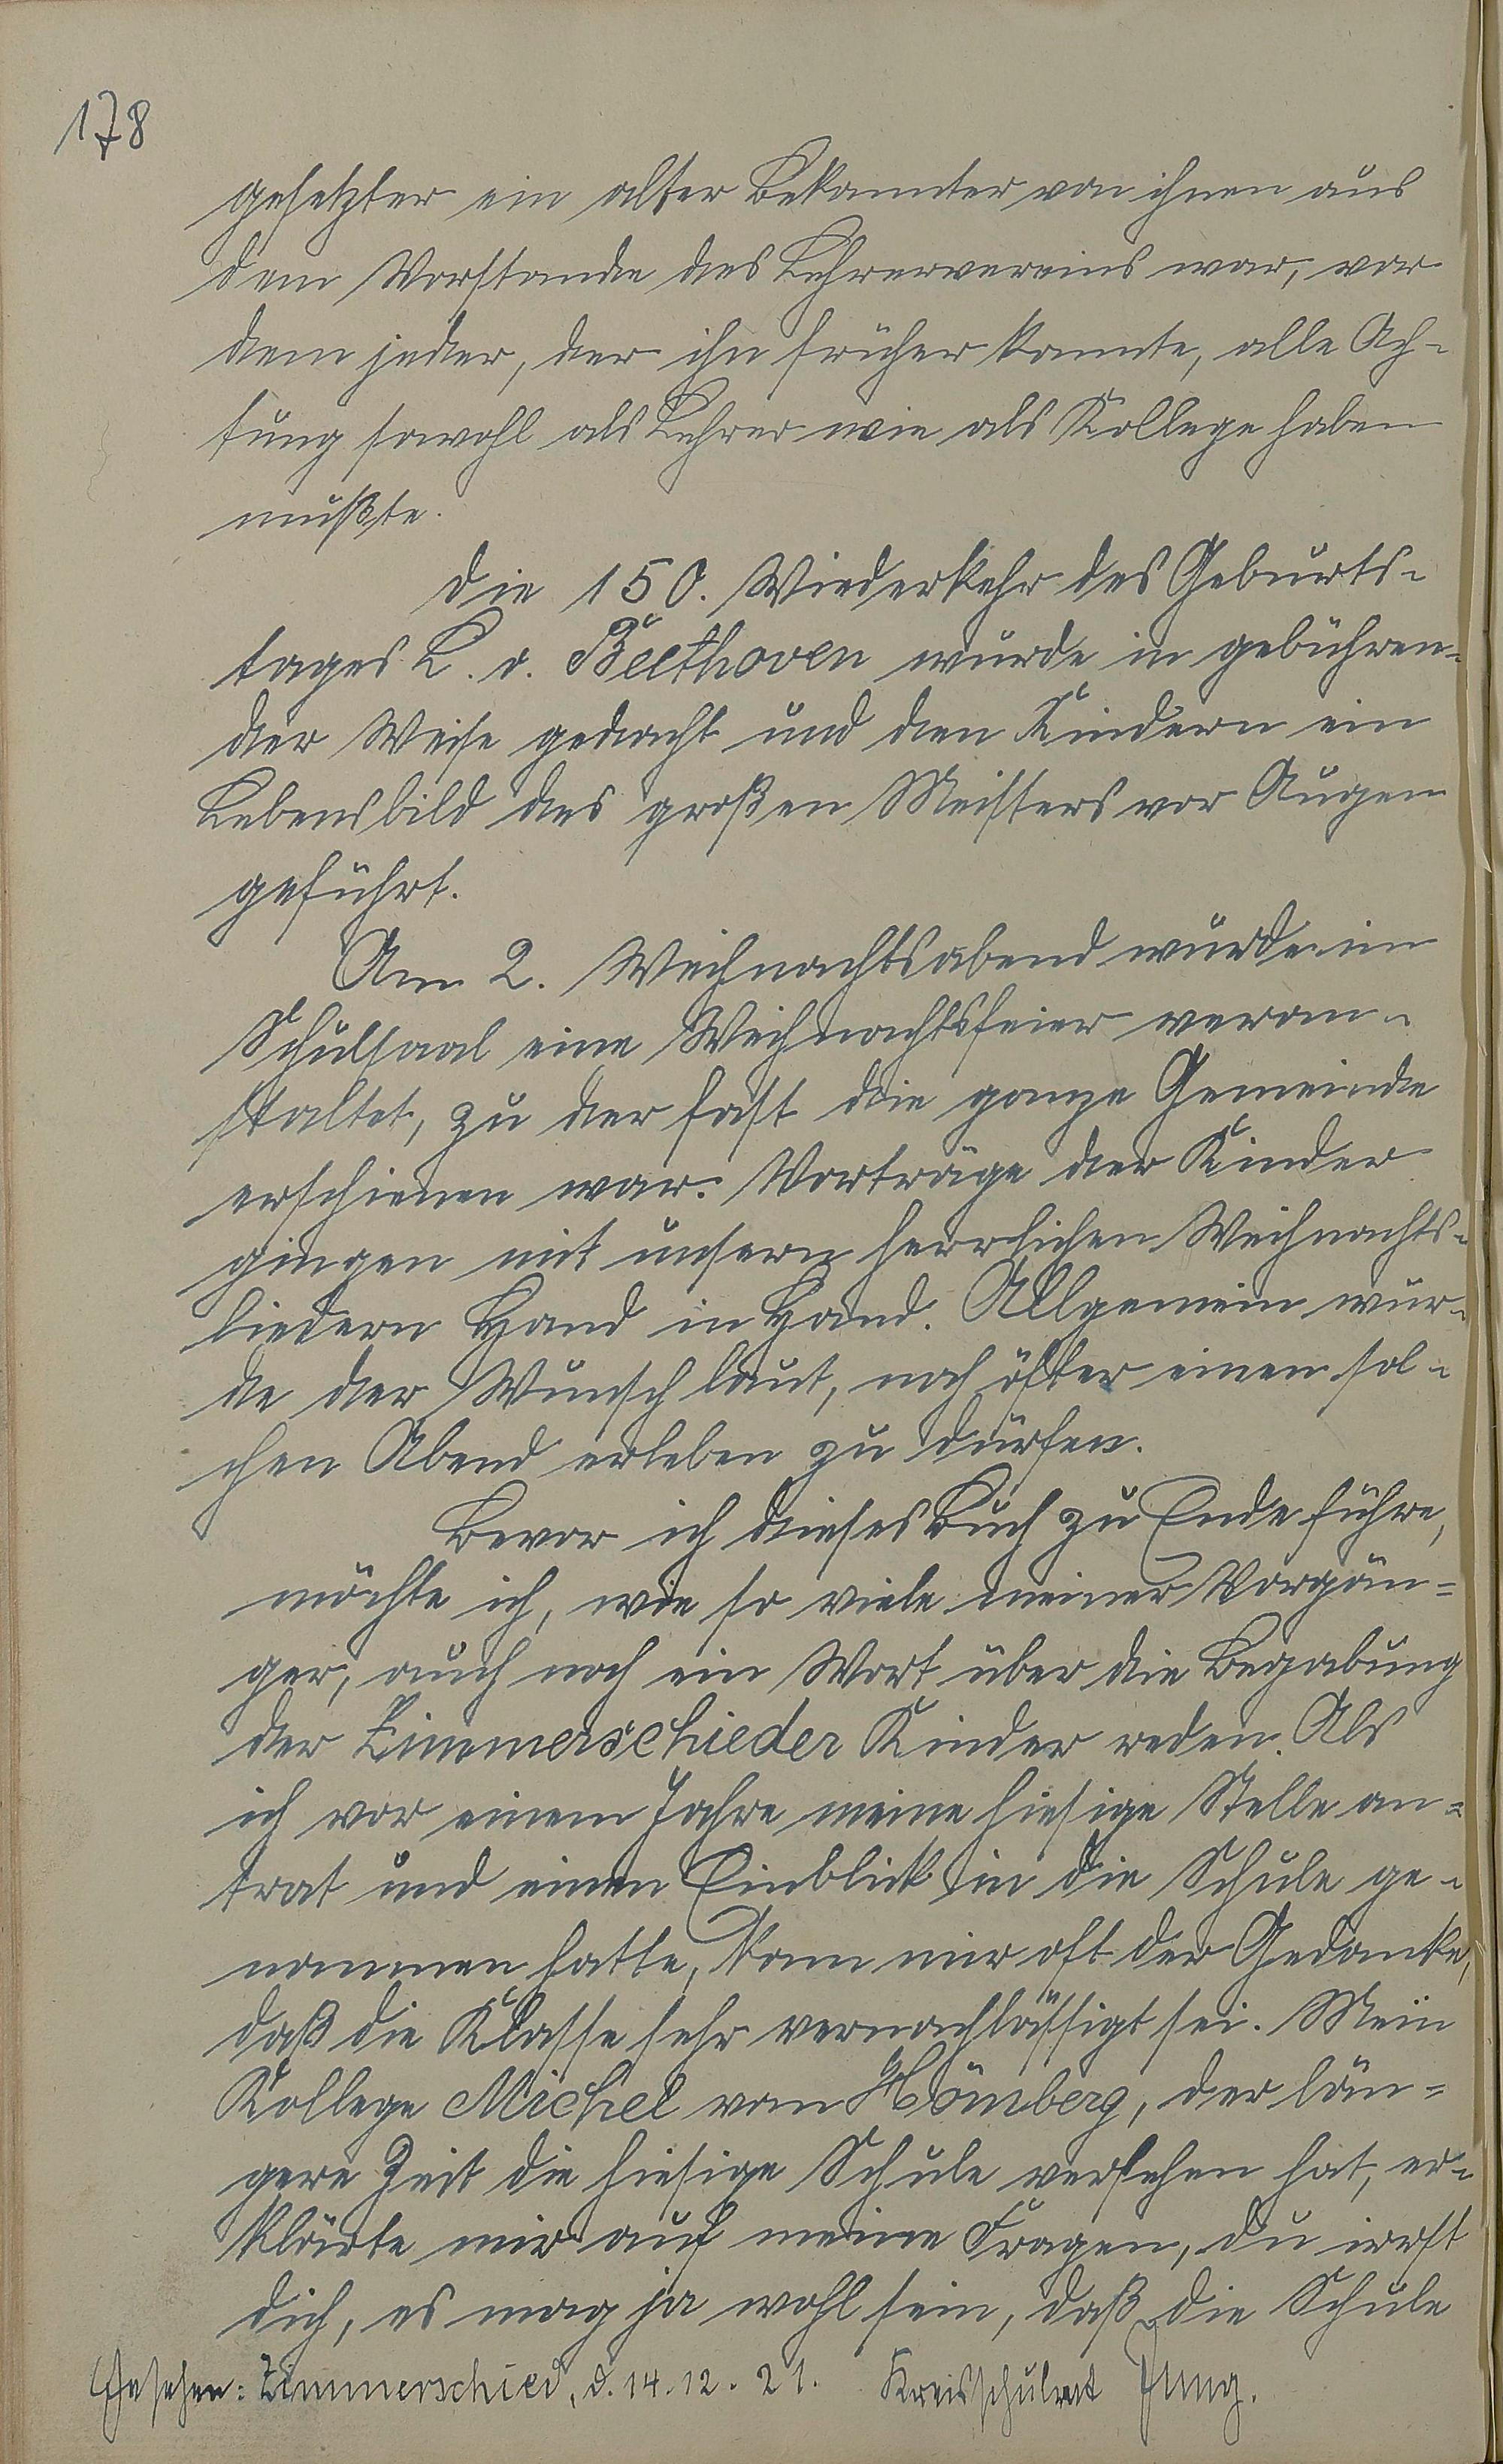 178
gesetzter ein alter Bekannter von ihnen aus
dem Vorstande des Lehrervereins war, vor
dem jeder, der ihn früher kannte, alle Ach-
tung sowohl als Lehrer wie als Kollege haben
mußte.
Die 150. Wiederkehr des Geburts-
tages L. v. Beethoven wurde in gebühren-
der Weise gedacht und den Kindern ein
Lebensbild des großen Meisters vor Augen
geführt.
Am 2. Weihnachtsabend wurde im
Schulsaal eine Weihnachtsfeier veran-
staltet, zu der fast die ganze Gemeinde
erschienen war. Vorträge der Kinder
gingen mit unsern herrlichen Weihnachts-
liedern Hand in Hand. Allgemein wur-
de der Wunsch laut, noch öfter einen sol-
chen Abend erleben zu dürfen.
Bevor ich dieses Buch zu Ende führe,
möchte ich, wie so viele meiner Vorgän-
ger, auch noch ein Wort über die Begabung
der Zimmerschieder Kinder reden. Als
ich vor einem Jahre meine hiesige Stelle an-
trat und einen Einblick in die Schule ge-
nommen hatte, kam mir oft der Gedanke,
daß die Klasse sehr vernachlässigt sei. Mein
Kollege Michel von Hömberg, der län-
gere Zeit die hiesige Schule versehen hat, er-
klärte mir auf meine Fragen, du irrst
dich, es mag ja wohl sein, daß die Schule
Gesehen: Zimmerschied, d. 14.12.21. Kreisschulrat Jung.